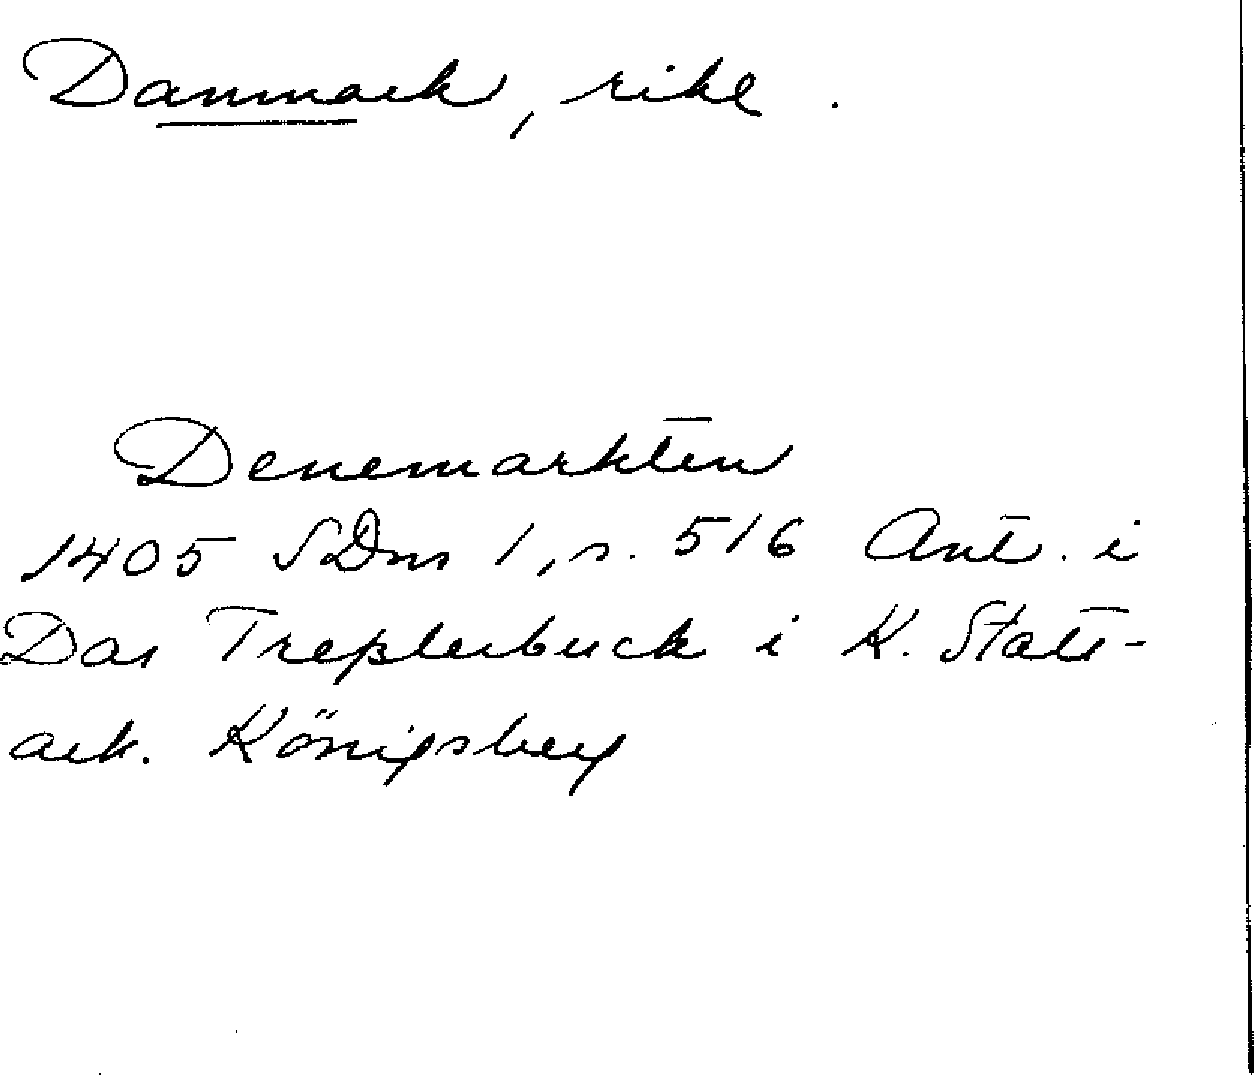 Danmark, rike.
Denemarkten
1405 SDns 1, s. 516 Ant. i
Das Treplerbuck i K. Stats-
ark. Königsberg